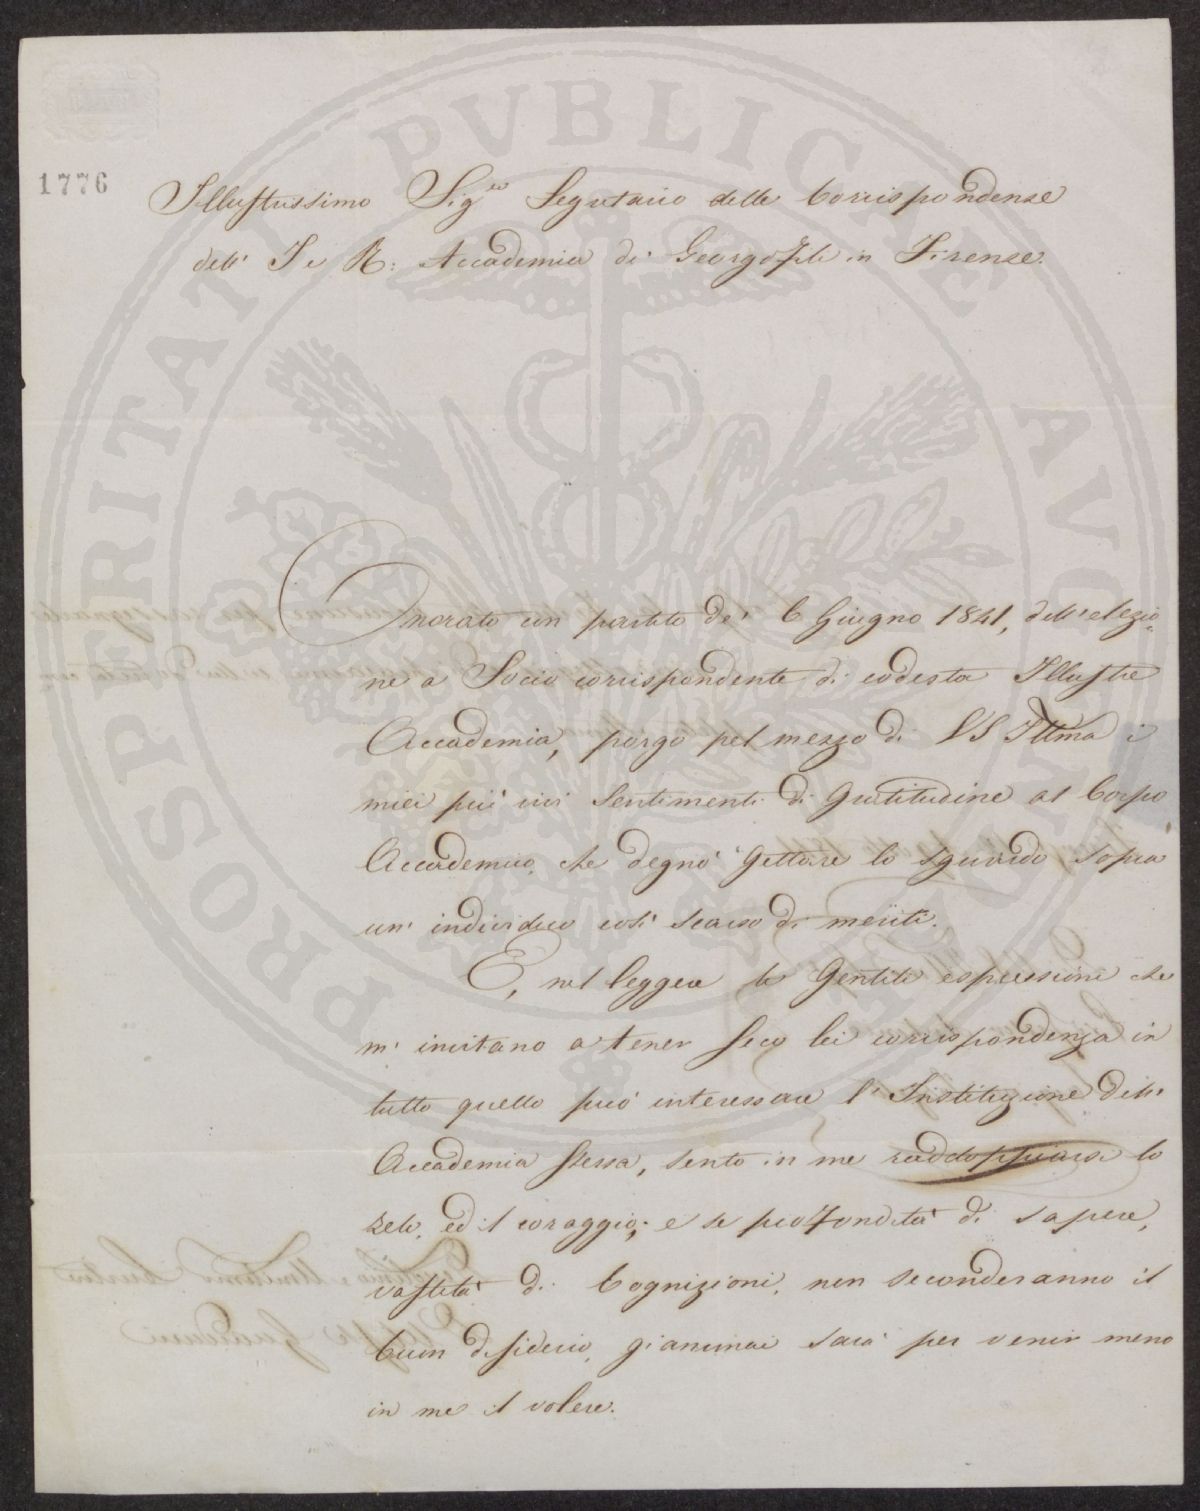 PROSPERITATI PVBLICAE AVGENDAE
1776
Illustrissimo Sig.re Segretario delle Corrispondenze
dell' I e R: Accademia di Georgofili in Firenze.
Onorato con partito de' 6 Giugno 1841, dell' elezio=
ne a Socio corrispondente di codesta Illustre
Accademia, porgo pel mezzo di VS Illma i
miei più vivi sentimenti di Gratitudine al Corpo
Accademico, che degnò Gettare lo sguardo sopra
un' individuo così scarso di meriti.
E, nel leggere le Gentili espressioni che
m' invitano a tener seco lei corrispondenza in
tutto quello può interessare l' Instituzione dell'
Accademia stessa, sento in me raddoppiarsi lo
zelo, ed il coraggio; e se profondità di sapere,
vastità di Cognizioni, non seconderanno il
buon desiderio, giammai sarà per venir meno
in me il volere.